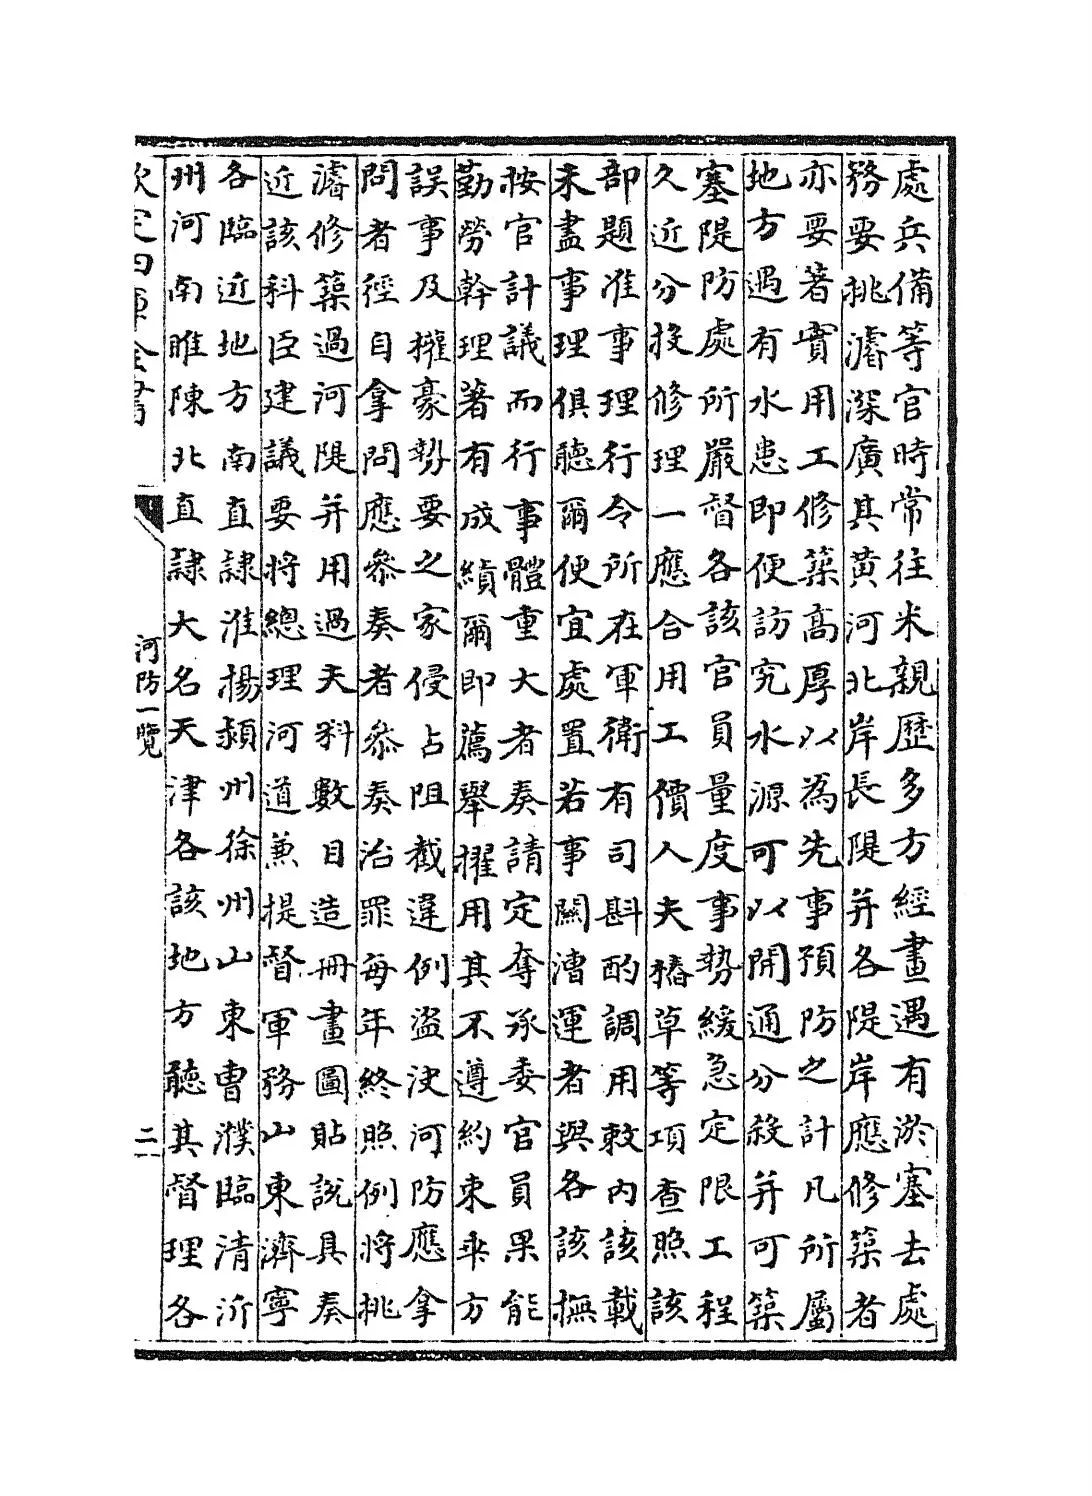 處兵備等官時常往来親歴多方經畫遇有淤塞去處
務要挑濬深廣其黄河北岸長隄并各隄岸應修築者
亦要著實用工修築高厚以為先事預防之計凡所屬
地方遇有水患即便訪究水源可以開通分殺并可築
塞隄防處所嚴督各該官員量度事勢緩急定限工程
久近分投修理一應合用工價人夫樁草等項查照該
部題准事理行令所在軍衛有司斟酌調用敕内該載
未盡事理俱聽爾便宜處置若事關漕運者與各該撫
按官計議而行事體重大者奏請定奪承委官員果能
勤勞幹理著有成績爾即薦舉擢用其不遵約束乖方
誤事及權豪勢要之家侵占阻截違例盜決河防應拿
問者徑自拿問應叅奏者叅奏治罪每年終照例將挑
濬修築過河隄并用過夫料數目造冊畫圖貼說具奏
近該科臣建議要將總理河道兼提督軍務山東濟寧
各臨近地方南直隸淮揚潁州徐州山東曹濮臨清沂
州河南睢陳北直隸大名天津各該地方聽其督理各
欽定四庫全書
河防一覽
二